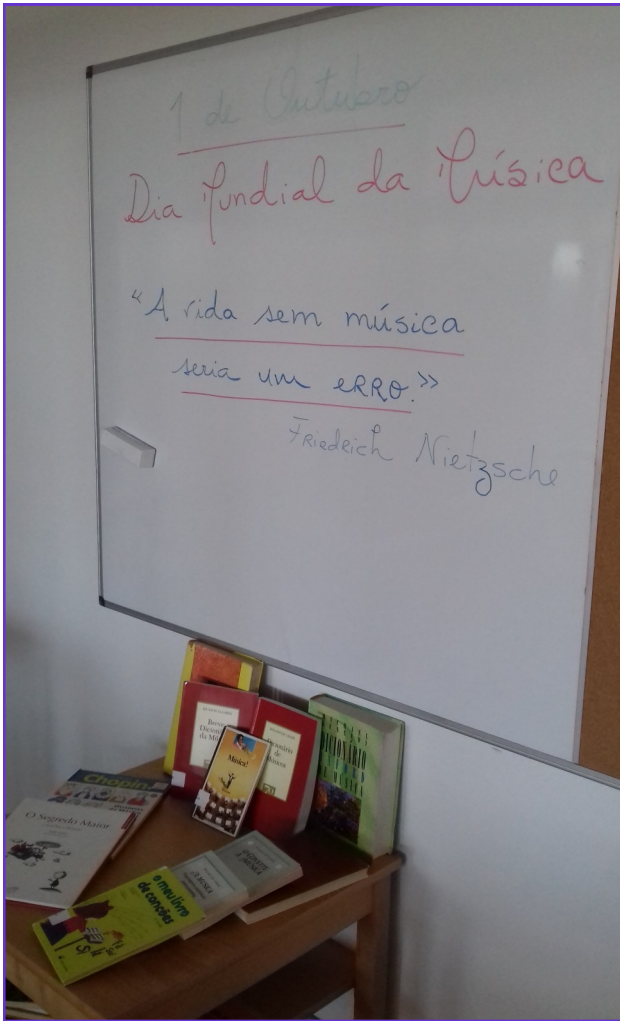 1 de Outubro
Dia Mundial da Música
“A vida sem música
seria um ERRO.”
Friedrich Nietzsche
Dicionário
da Música
Dicionário
de Música
Música!
DICIONÁRIO
Chopin
O Segredo Maior
o meu livro
de canções